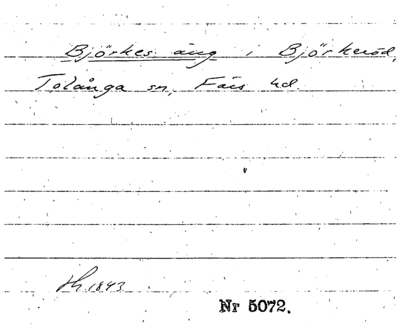 Björkes äng i Björkeröd,
Tolånga sn, Färs hd.
lh 1843
Nr 5072.